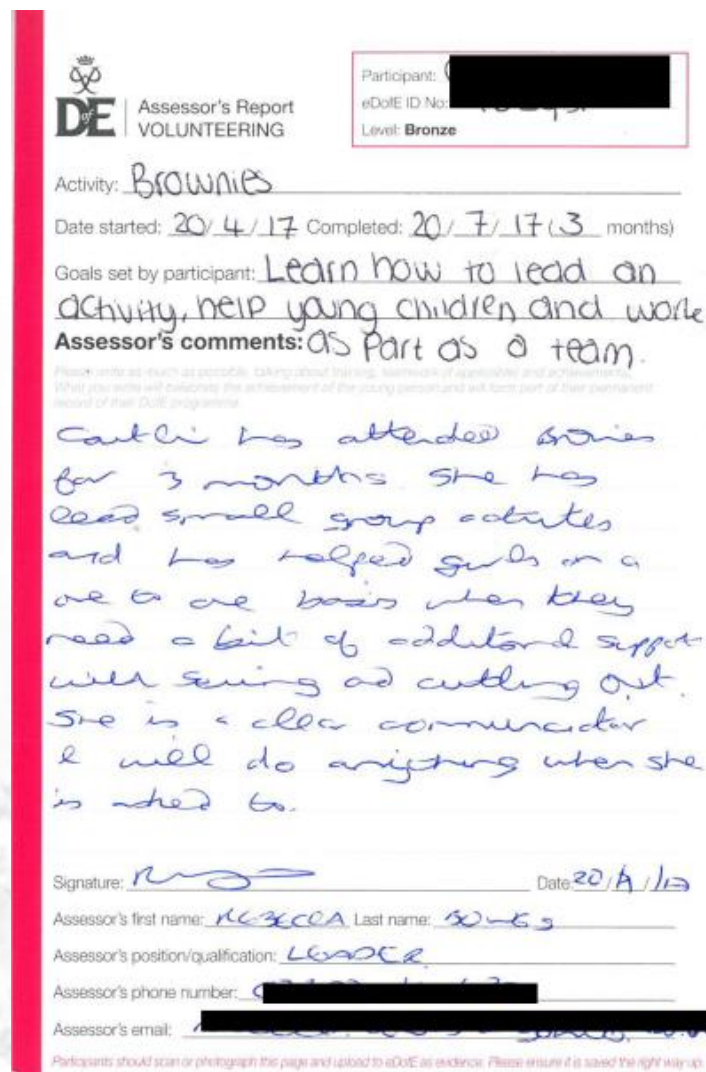 DofE
Assessor's Report
VOLUNTEERING
Participant:
eDofE ID No:
Level: Bronze
Activity: Brownies
Date started: 20/4/17 Completed: 20/7/17 (3 months)
Goals set by participant: Learn how to lead an
activity, help young children and work
Assessor's comments: as part as a team.
Please write as much as possible, talking about training, teamwork (if applicable) and achievements.
What you write will celebrate the achievement of the young person and will form part of their permanent
record of their DofE programme.
has attended
for 3 months she has
lead small group activites
and has helped girls on a
one to one basis when they
need a bit of additional support
with sewing and cutting out.
She is a clear communicator
& will do anything when she
is asked to.
Signature: Date:
Assessor's first name: REBECCA Last name:
Assessor's position/qualification: LEADER
Assessor's phone number:
Assessor's email:
Participants should scan or photograph this page and upload to eDofE as evidence. Please ensure it is saved the right way up.